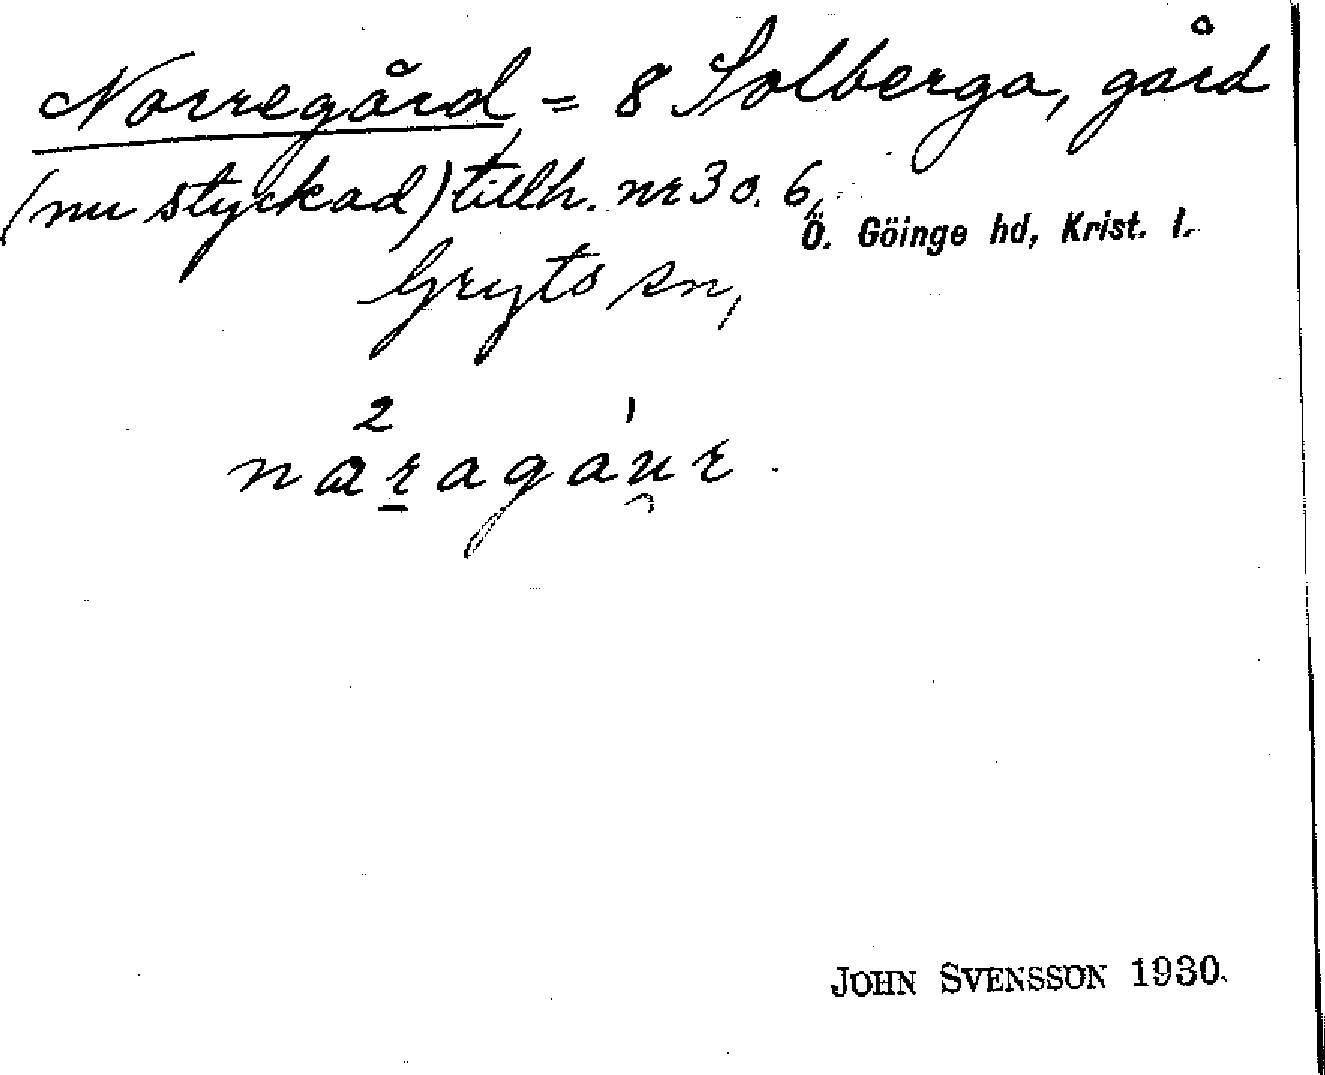 Norregård = 8 Solberga, gård
(nu styckad) tillh. nr 3 o. 6,
Ö. Göinge hd, Krist. l.
Gryts sn,
2 1
naragaur
JOHN SVENSSON 1930.